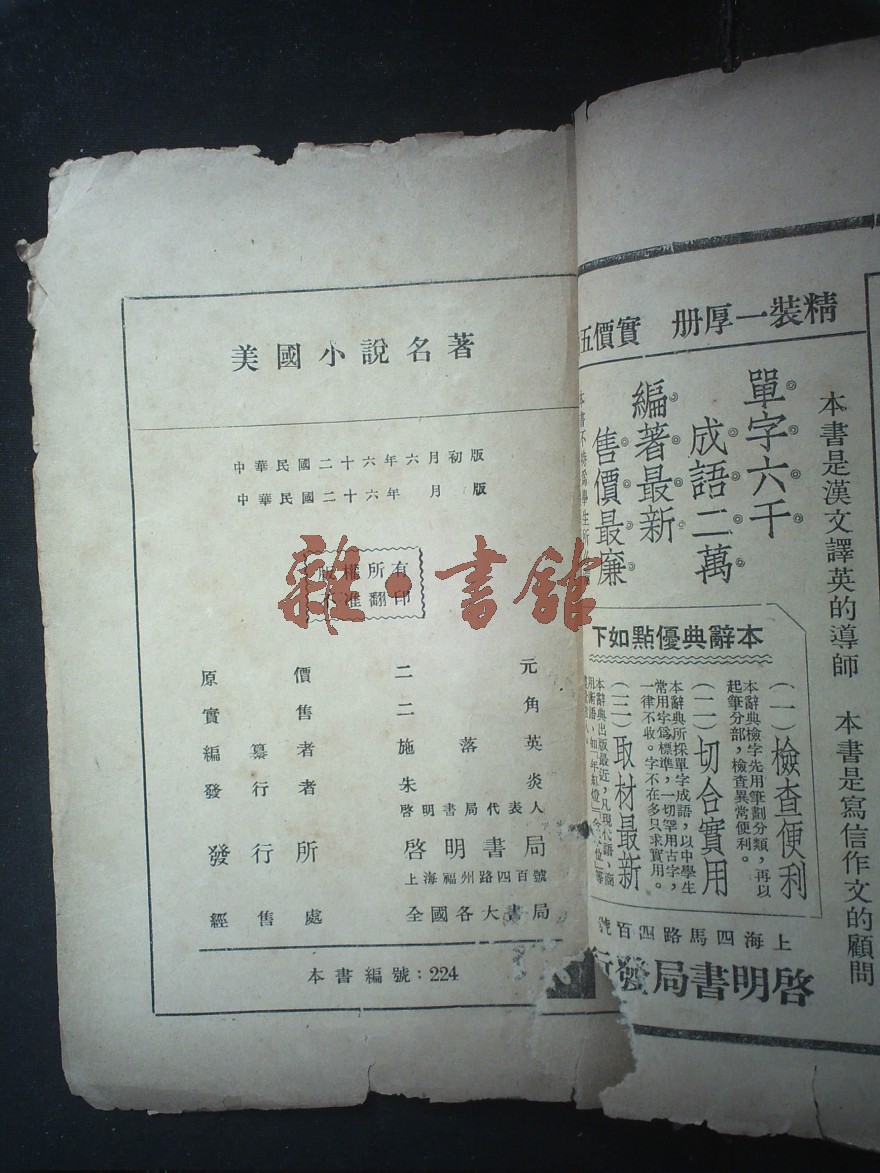 美國小說名著
中華民國二十六年六月初版
中華民國二十六年 月 版
版權所有
不准翻印
雜·書館
原價二元
實售二角
編纂者施落英
發行者朱炎
啓明書局代表人
發行所啓明書局
上海福州路四百號
經售處全國各大書局
本書編號：224
精裝一厚册 實價五
本書是漢文譯英的導師 本書是寫信作文的顧問
單字六千
成語二萬
編著最新
售價最廉
本辭典優點如下
（一）檢查便利
本辭典檢字先用筆劃分類，再以
起筆分部，檢查異常便利。
（二）切合實用
本辭典所採單字成語，以中學生
常用字爲標準，一切罕用古字，
一律不收。字不在多只求實用。
（三）取材最新
本辭典出版最近，凡現代語、商
上海四馬路四百號
啓明書局發行